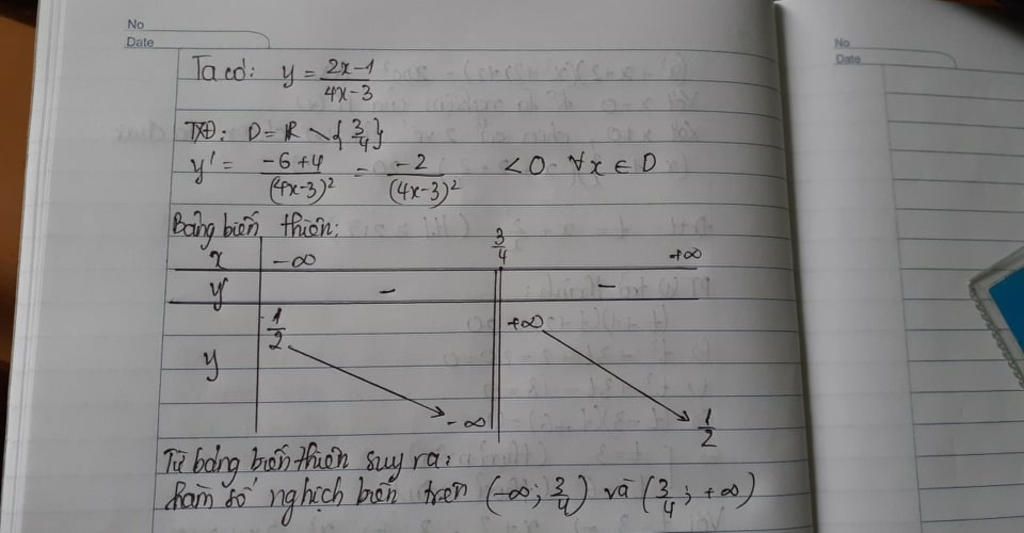 No
Date
No
Date
Ta có: y = \frac{2x-1}{4x-3}
TXĐ: D = R \ {\frac{3}{4}}
y' = \frac{-6+4}{(4x-3)^2} = \frac{-2}{(4x-3)^2} < 0 ∀x ∈ D
Bảng biến thiên:
x -∞ \frac{3}{4} +∞
y' - -
y \frac{1}{2} -∞ +∞ \frac{1}{2}
Từ bảng biến thiên suy ra:
hàm số nghịch biến trên (-∞; \frac{3}{4}) và (\frac{3}{4}; +∞)